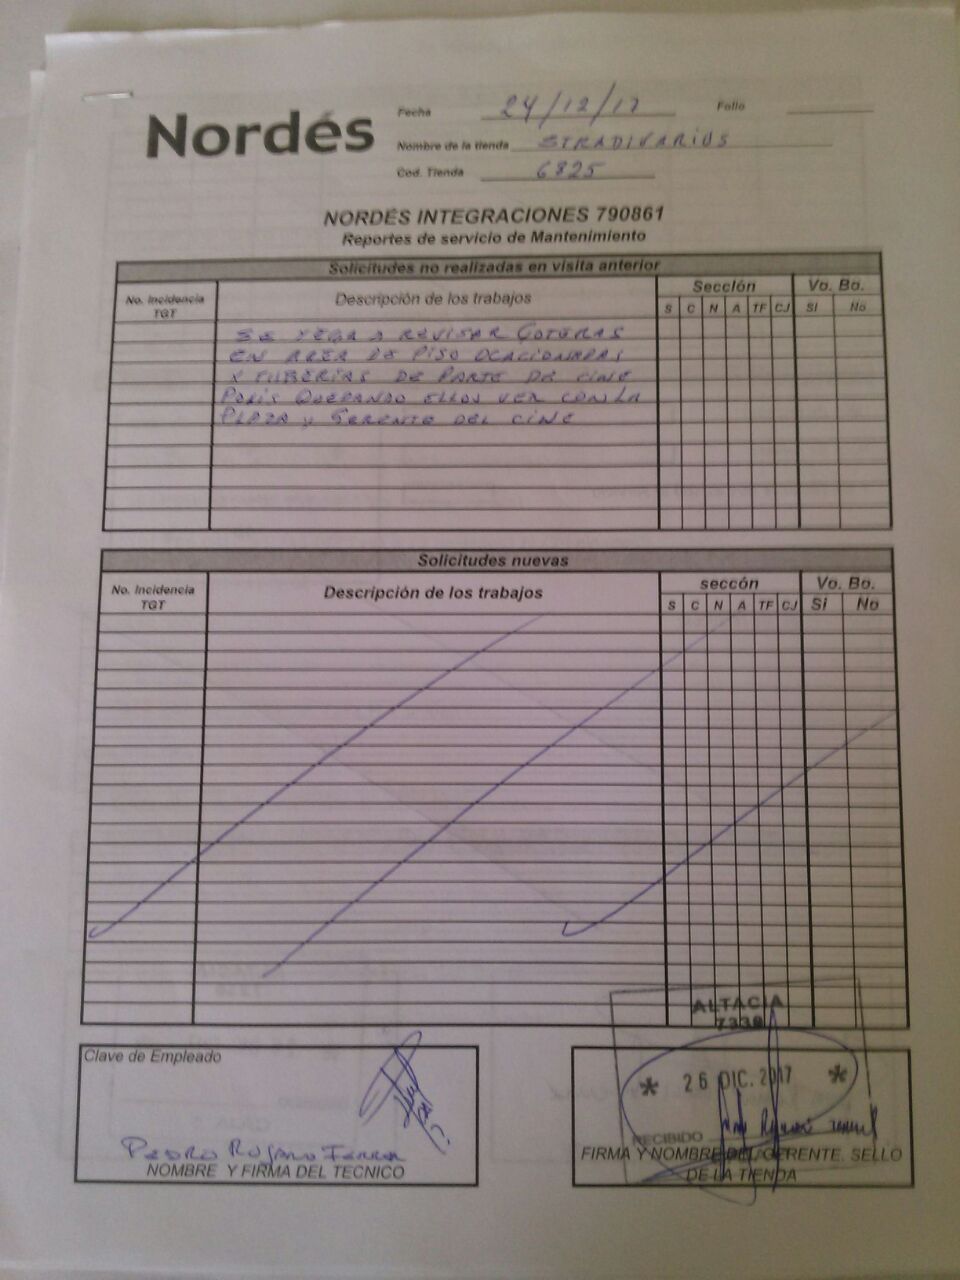 Nordés
Fecha 24/12/17 Folio
Nombre de la tienda STRADIVARIUS
Cod. Tienda 6825
NORDÉS INTEGRACIONES 790861
Reportes de servicio de Mantenimiento
Solicitudes no realizadas en visita anterior
No. Incidencia TGT Descripción de los trabajos Sección Vo. Bo.
S C N A TF CJ Si No
SE REVISAR GOTERAS
EN AREA DE PISO OCACIONADAS
X TUBERIAS DE PARTE DE CINE
QUEDANDO ELLOS VER CON LA
PLAZA Y GERENTE DEL CINE
Solicitudes nuevas
No. Incidencia TGT Descripción de los trabajos seccón Vo. Bo.
S C N A TF CJ Si No
ALTACIA
7338
Clave de Empleado
* 26 DIC. 2017 *
RECIBIDO
PEDRO
NOMBRE Y FIRMA DEL TECNICO
FIRMA Y NOMBRE DEL GERENTE. SELLO
DE LA TIENDA